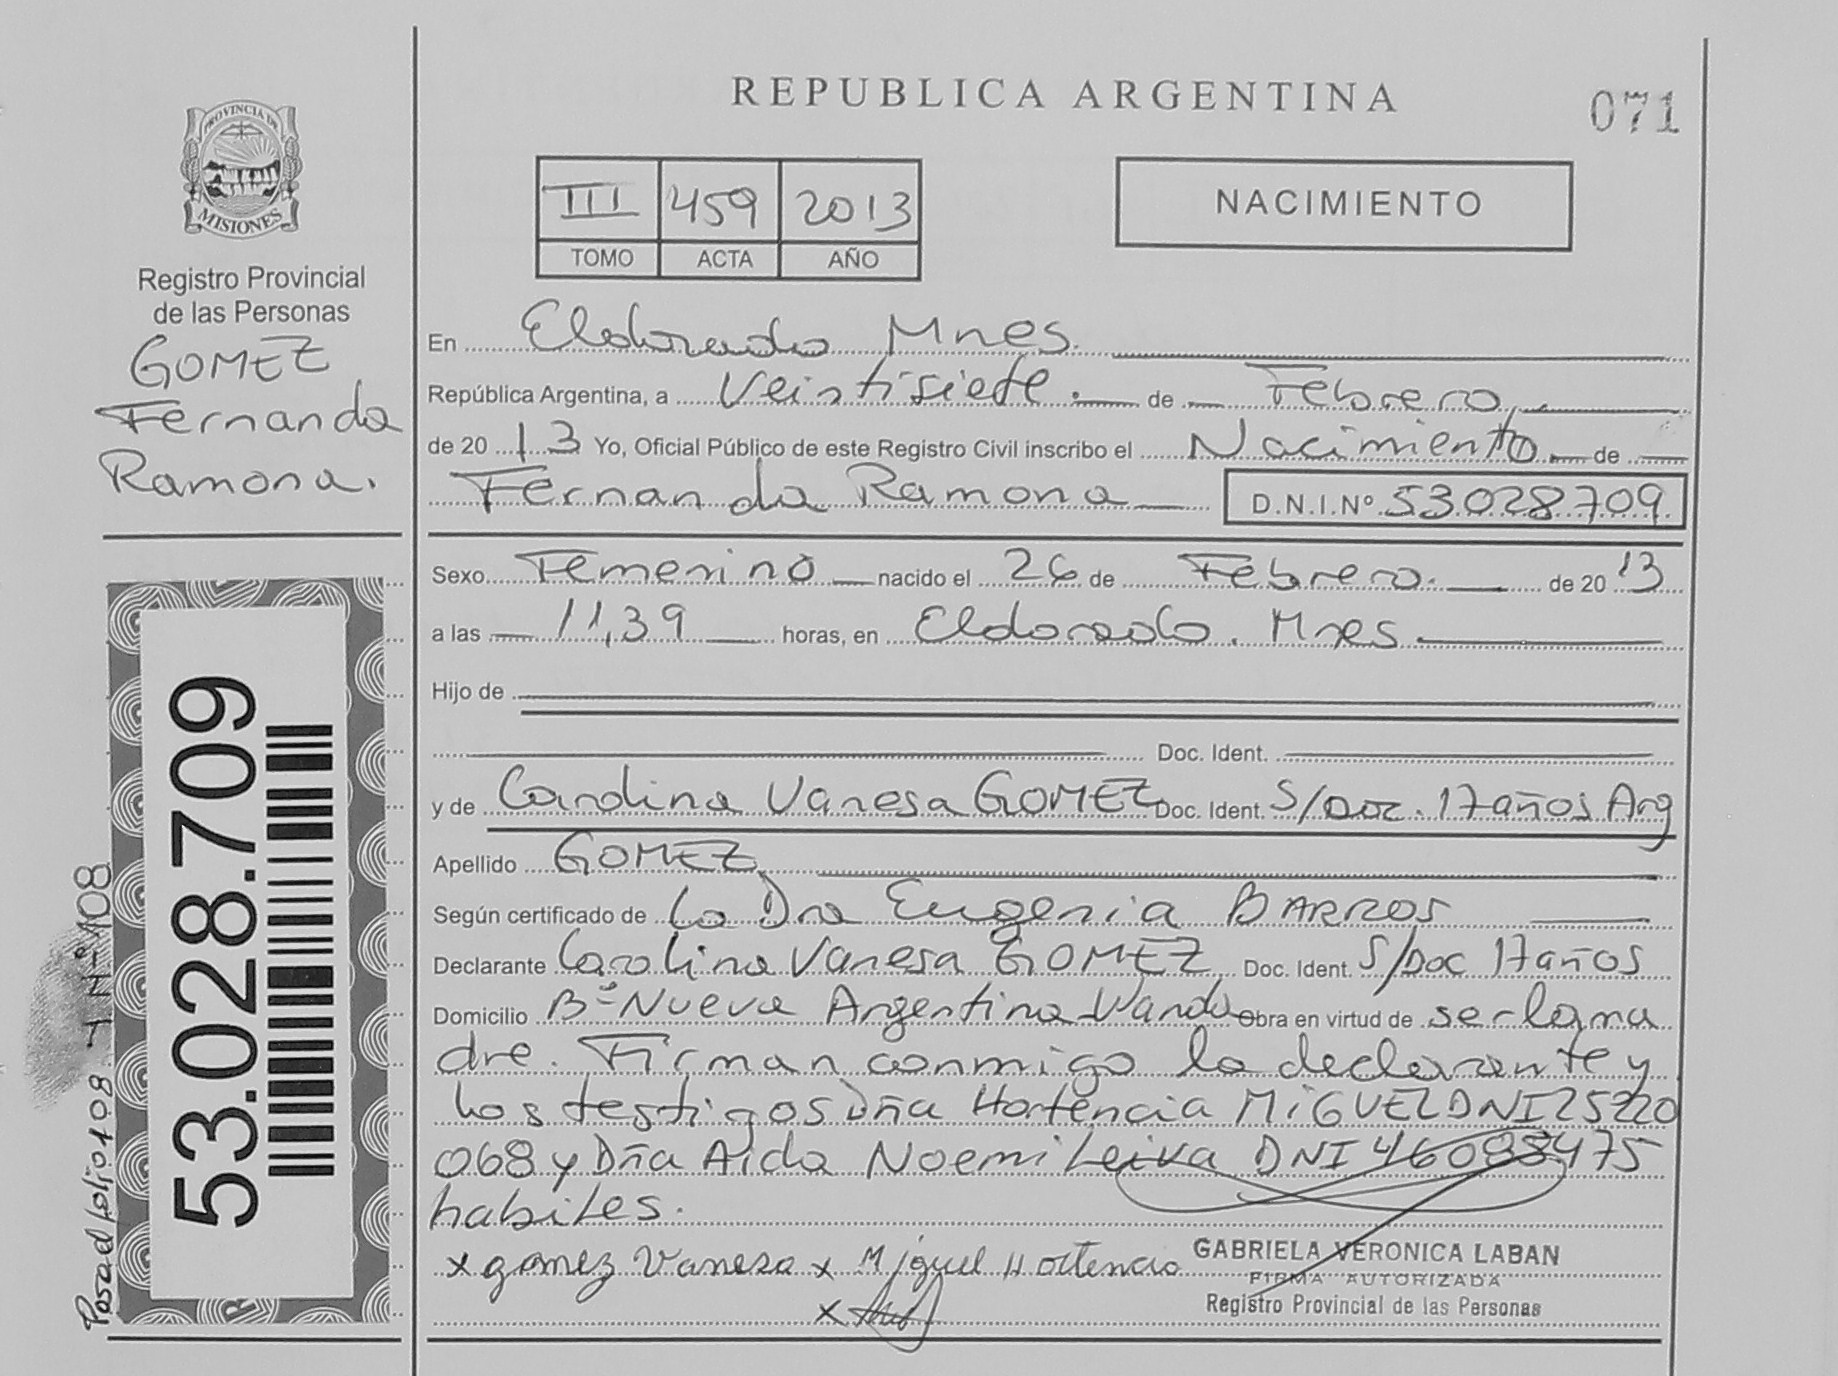 REPUBLICA ARGENTINA
071
PROVINCIA DE
MISIONES
Registro Provincial
de las Personas
GOMEZ
Fernanda
Ramona.
III 459 2013
TOMO ACTA AÑO
NACIMIENTO
En Eldorado Mnes.
República Argentina, a Veintisiete de Febrero
de 20 13 Yo, Oficial Público de este Registro Civil inscribo el Nacimiento de
Fernanda Ramona D.N.I.Nº 53028709
Sexo Femenino nacido el 26 de Febrero de 20 13
a las 11,39 horas, en Eldorado. Mnes
Hijo de
Doc. Ident.
y de Carolina Vanesa GOMEZ Doc. Ident. S/Doc. 17 años Arg
Apellido GOMEZ
Según certificado de La Dra Eugenia BARROS
Declarante Carolina Vanesa GOMEZ Doc. Ident. S/Doc 17 años
Domicilio Bº Nueva Argentina Wanda Obra en virtud de ser la ma
dre. Firman conmigo la declarante y
los testigos Dña Hortencia MiGUEL DNI 25220
068 y Dña Aida Noemi Leiva DNI 46098475
habiles.
x gomez Vanesa x Miguel Hortencia
x
GABRIELA VERONICA LABAN
FIRMA AUTORIZADA
Registro Provincial de las Personas
53.028.709
Posad folio 108 T Nº 108